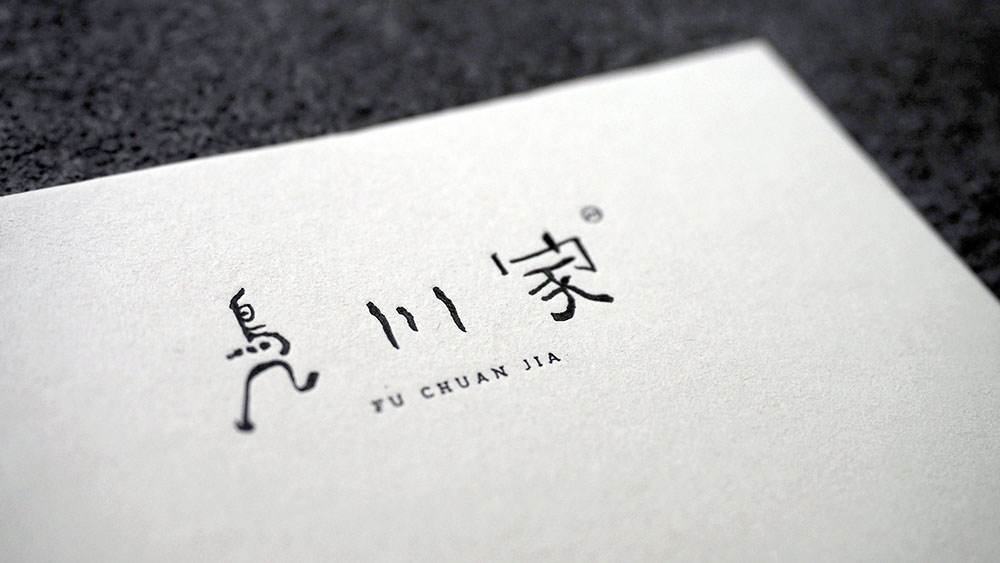 鳧川家®
FU CHUAN JIA